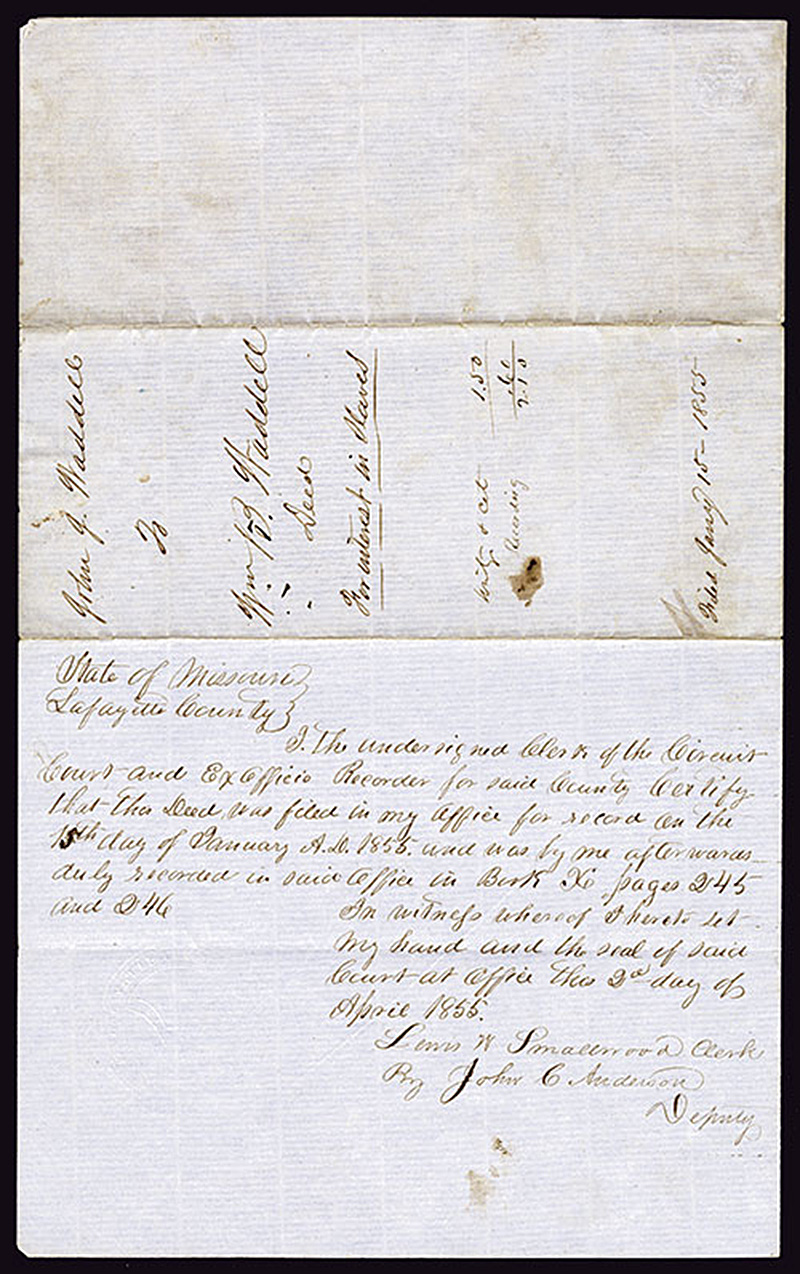 John J. Waddell
To
Wm B. Waddell
Deed
For interest in Slaves
& cet 1.50
Recording 60
2.10
Filed Jany 15 - 1855
State of Missouri }
Lafayette County }
I. the undersigned Clerk of the Circuit
Court and Ex Officio Recorder for said County Certify
that this Deed was filed in my Office for record on the
15th day of January A.D. 1855. and was by me afterwards
duly recorded in said Office in Book X pages 245
and 246
In witness whereof I hereto set
my hand and the seal of said
Court at Office this 2d day of
April 1855.
Lewis W Smallwood Clerk
By John C Anderson
Deputy